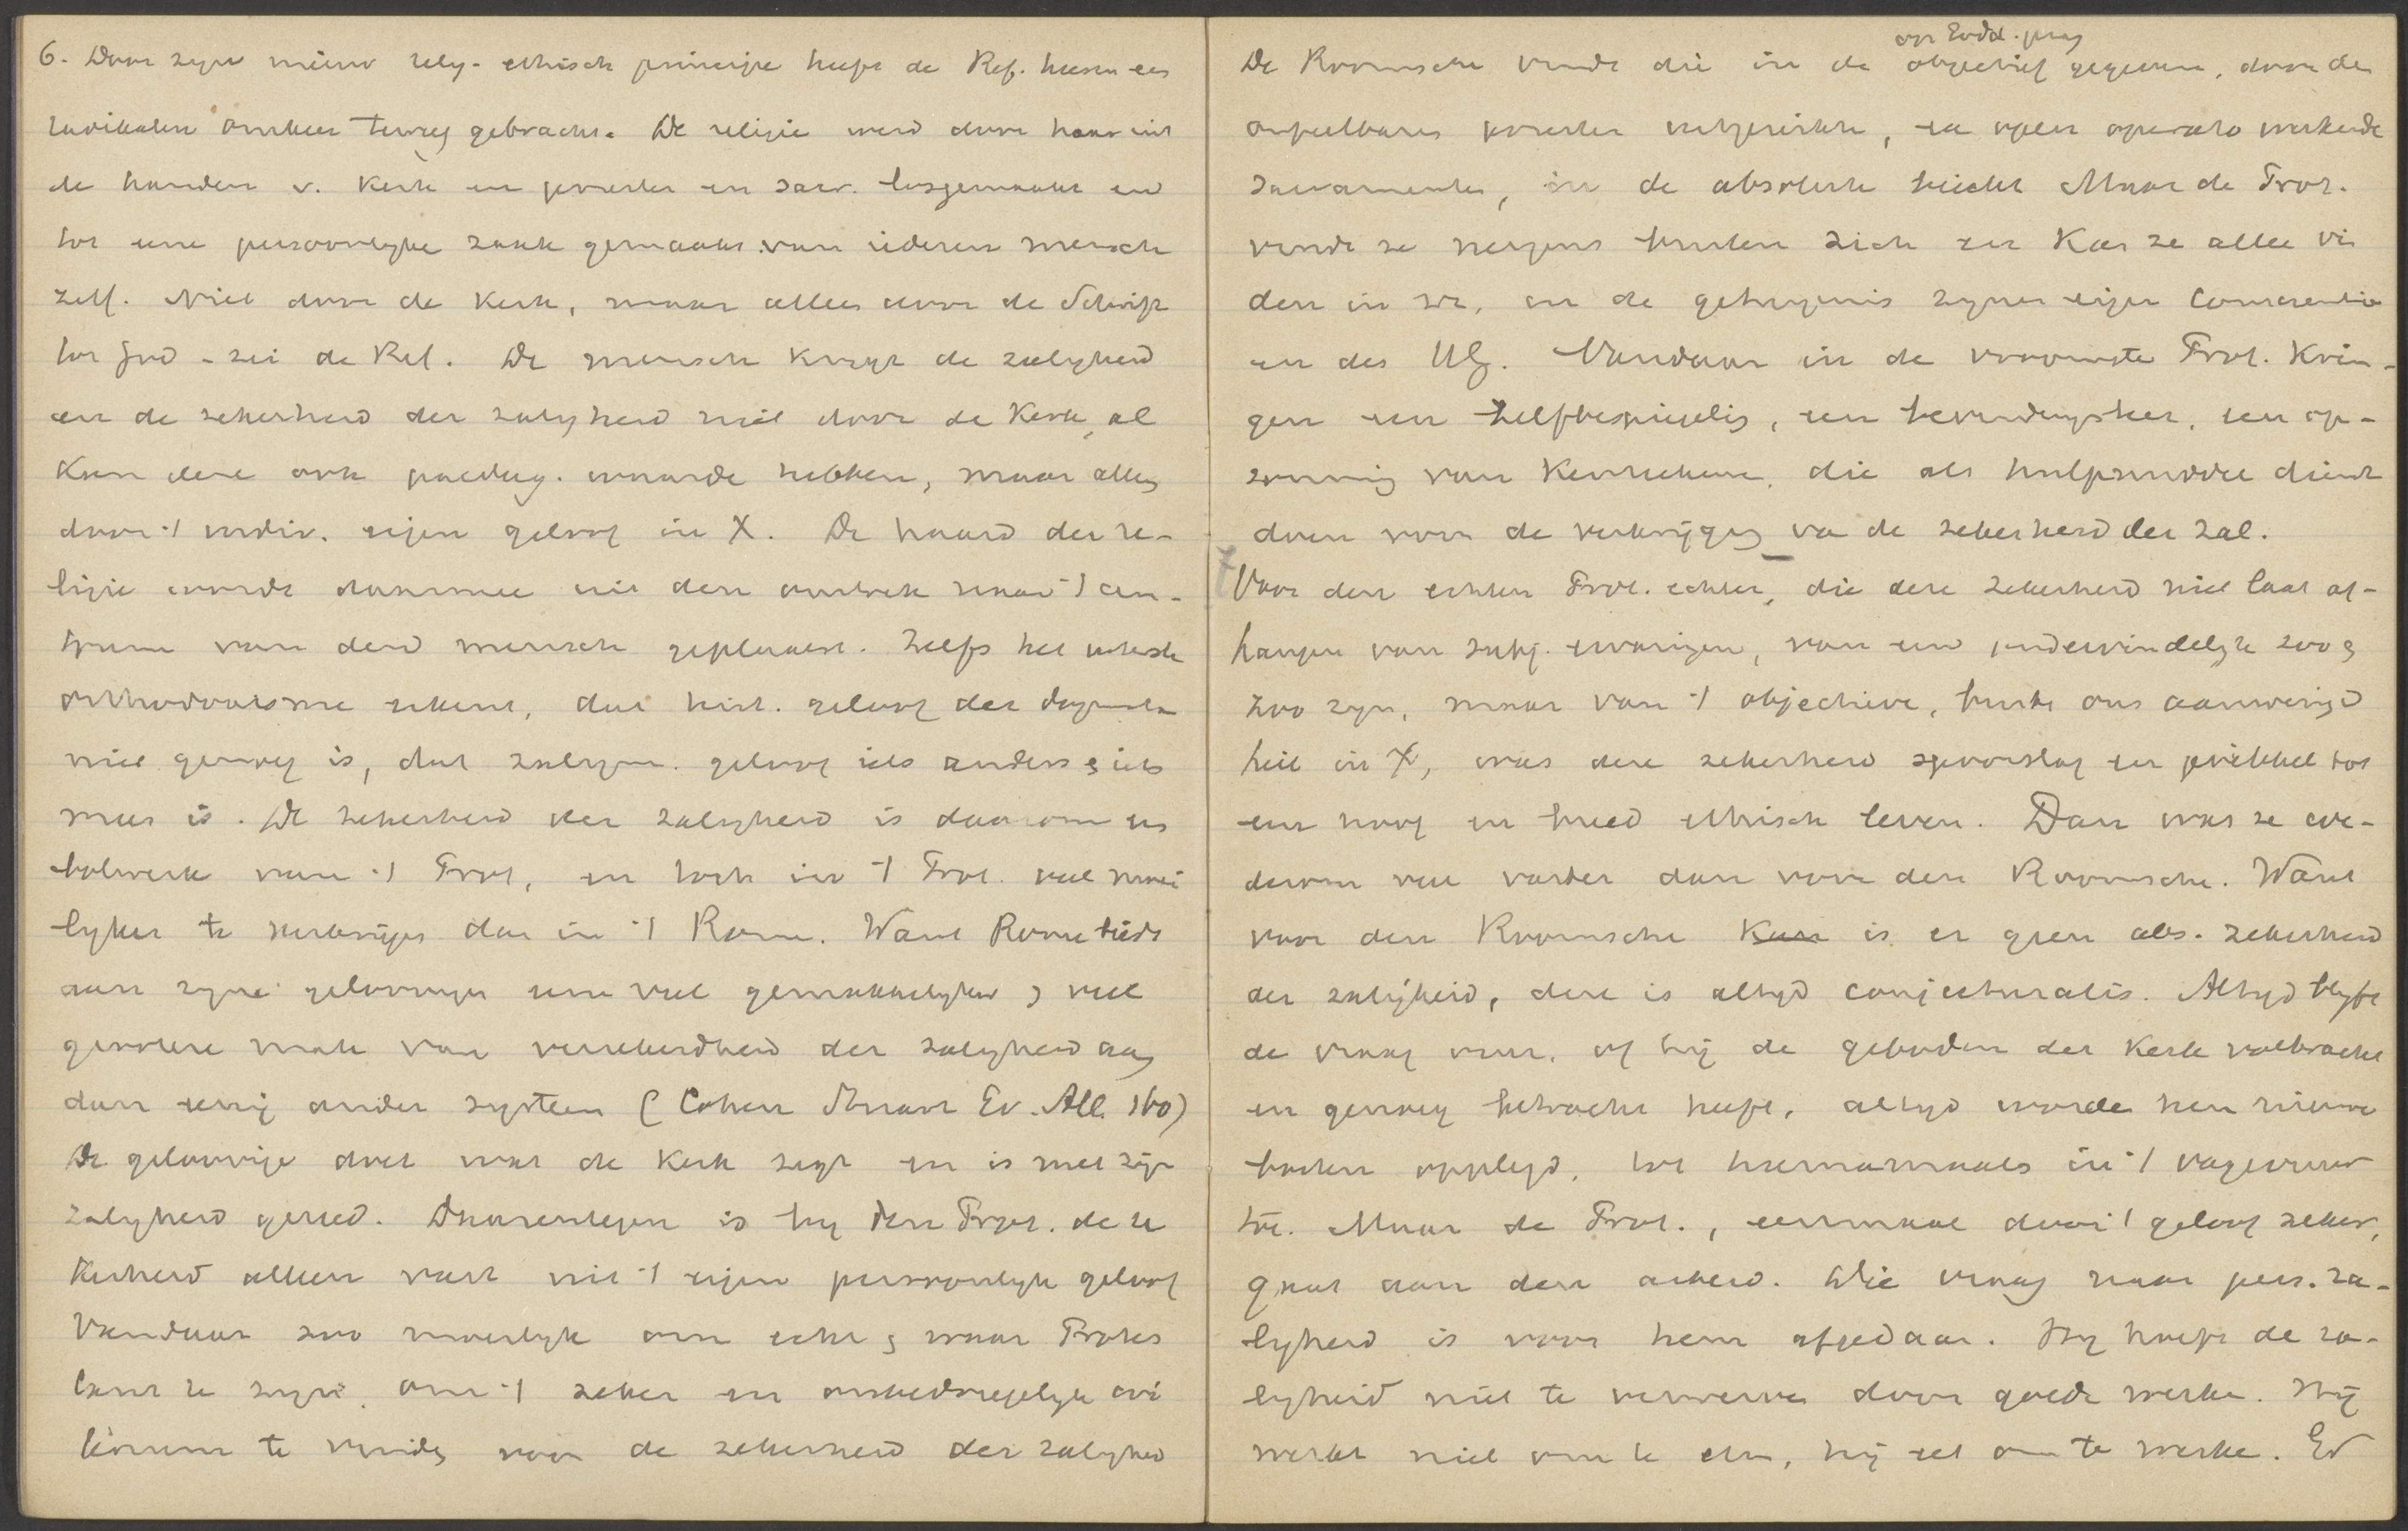 6. Door zijn nieuw relig-ethisch principe heeft de Ref. heeren een
radikalen omkeer teweeg gebracht. De religie werd door haar uit
de handen v. kerk en priester en sacr. losgemaakt en
tot eene persoonlijke zaak gemaakt van iederen mensch
zelf. Niet door de Kerk, maar alleen door de Schrift
tot God - zei de Ref. De mensch krijgt de zaligheid
en de zekerheid der zaligheid niet door de Kerk, al
kan deze ook paedag. waarde hebben, maar alleen
door 't indiv. eigen geloof in X. De haard der re-
ligie wordt daarmee uit den omtrek naar 't cen-
trum van den mensch geplaatst. Zelfs het
orthodoxisme erkent, dat hist. geloof der dogmata
niet genoeg is, dat zaligm. geloof iets anders & iets
meer is. De zekerheid der zaligheid is daarom een
bolwerk van 't Prot, en toch in 't Prot. veel moei
lijker te verkrijgen dan in 't Rome. Want Rome biedt
aan zijne geloovigen eene veel gemakkelijker & veel
grootere mate van verzekerdheid der zaligheid aan
dan eenig ander systeem (Cohen Stuart Ev. All. 160)
De geloovige doet wat de Kerk zegt en is met zijn
zaligheid gereed. Daarentegen is bij den Prot. de ze
kerheid alleen vast uit 't eigen persoonlijk geloof
Vandaar zoo moeilijk om echt & waar Protes
tant te zijn, om 't zeker en onbedriegelijk cri
terium te vinden voor de zekerheid der zaligheid
op Godd. gezag
De Roomsche vindt die in de objectief gegeven, door den
onfeilbaren priester uitgereikte, ex opere operato werkende
sacramenten, in de absolute biecht Maar de Prot.
vindt ze nergens buiten zich en kan ze alleen vin
den in zich, in de getuigenis zijner eigen conscientie
en des HG. Vandaar in de vroomste Prot. krin-
gen een zelfbespiegeling, een bevindingsleer, een op-
somming van kenteekenen, die als hulpmiddel dienst
doen voor de verkrijging van de zekerheid der zal.
Voor den echten Prot. echter, die deze zekerheid niet laat af-
hangen van subj. ervaringen, van een ondervindelijk zoo &
zoo zijn, maar van 't objectieve, buiten ons aanwezige
heil in X, was deze zekerheid spoorslag en prikkel tot
een hoog en breed ethisch leven. Dan was ze we-
derom veel vaster dan voor den Roomsche. Want
voor den Roomsche kan is er geen abs. zekerheid
der zaligheid, deze is altijd conjecturalis. Altijd blijft
de vraag over, of hij de geboden der Kerk volbracht
en genoeg betracht heeft, altijd worden hem nieuwe
boeten opgelegd, tot hiernamaals in 't vagevuur
toe. Maar de Prot., eenmaal door 't geloof zeker,
gaat aan den arbeid. Die vraag naar pers. za-
ligheid is voor hem afgedaan. Hij hoeft de za-
ligheid niet te verwerven door goede werken. Hij
werkt niet om te eten, hij eet om te werken. En